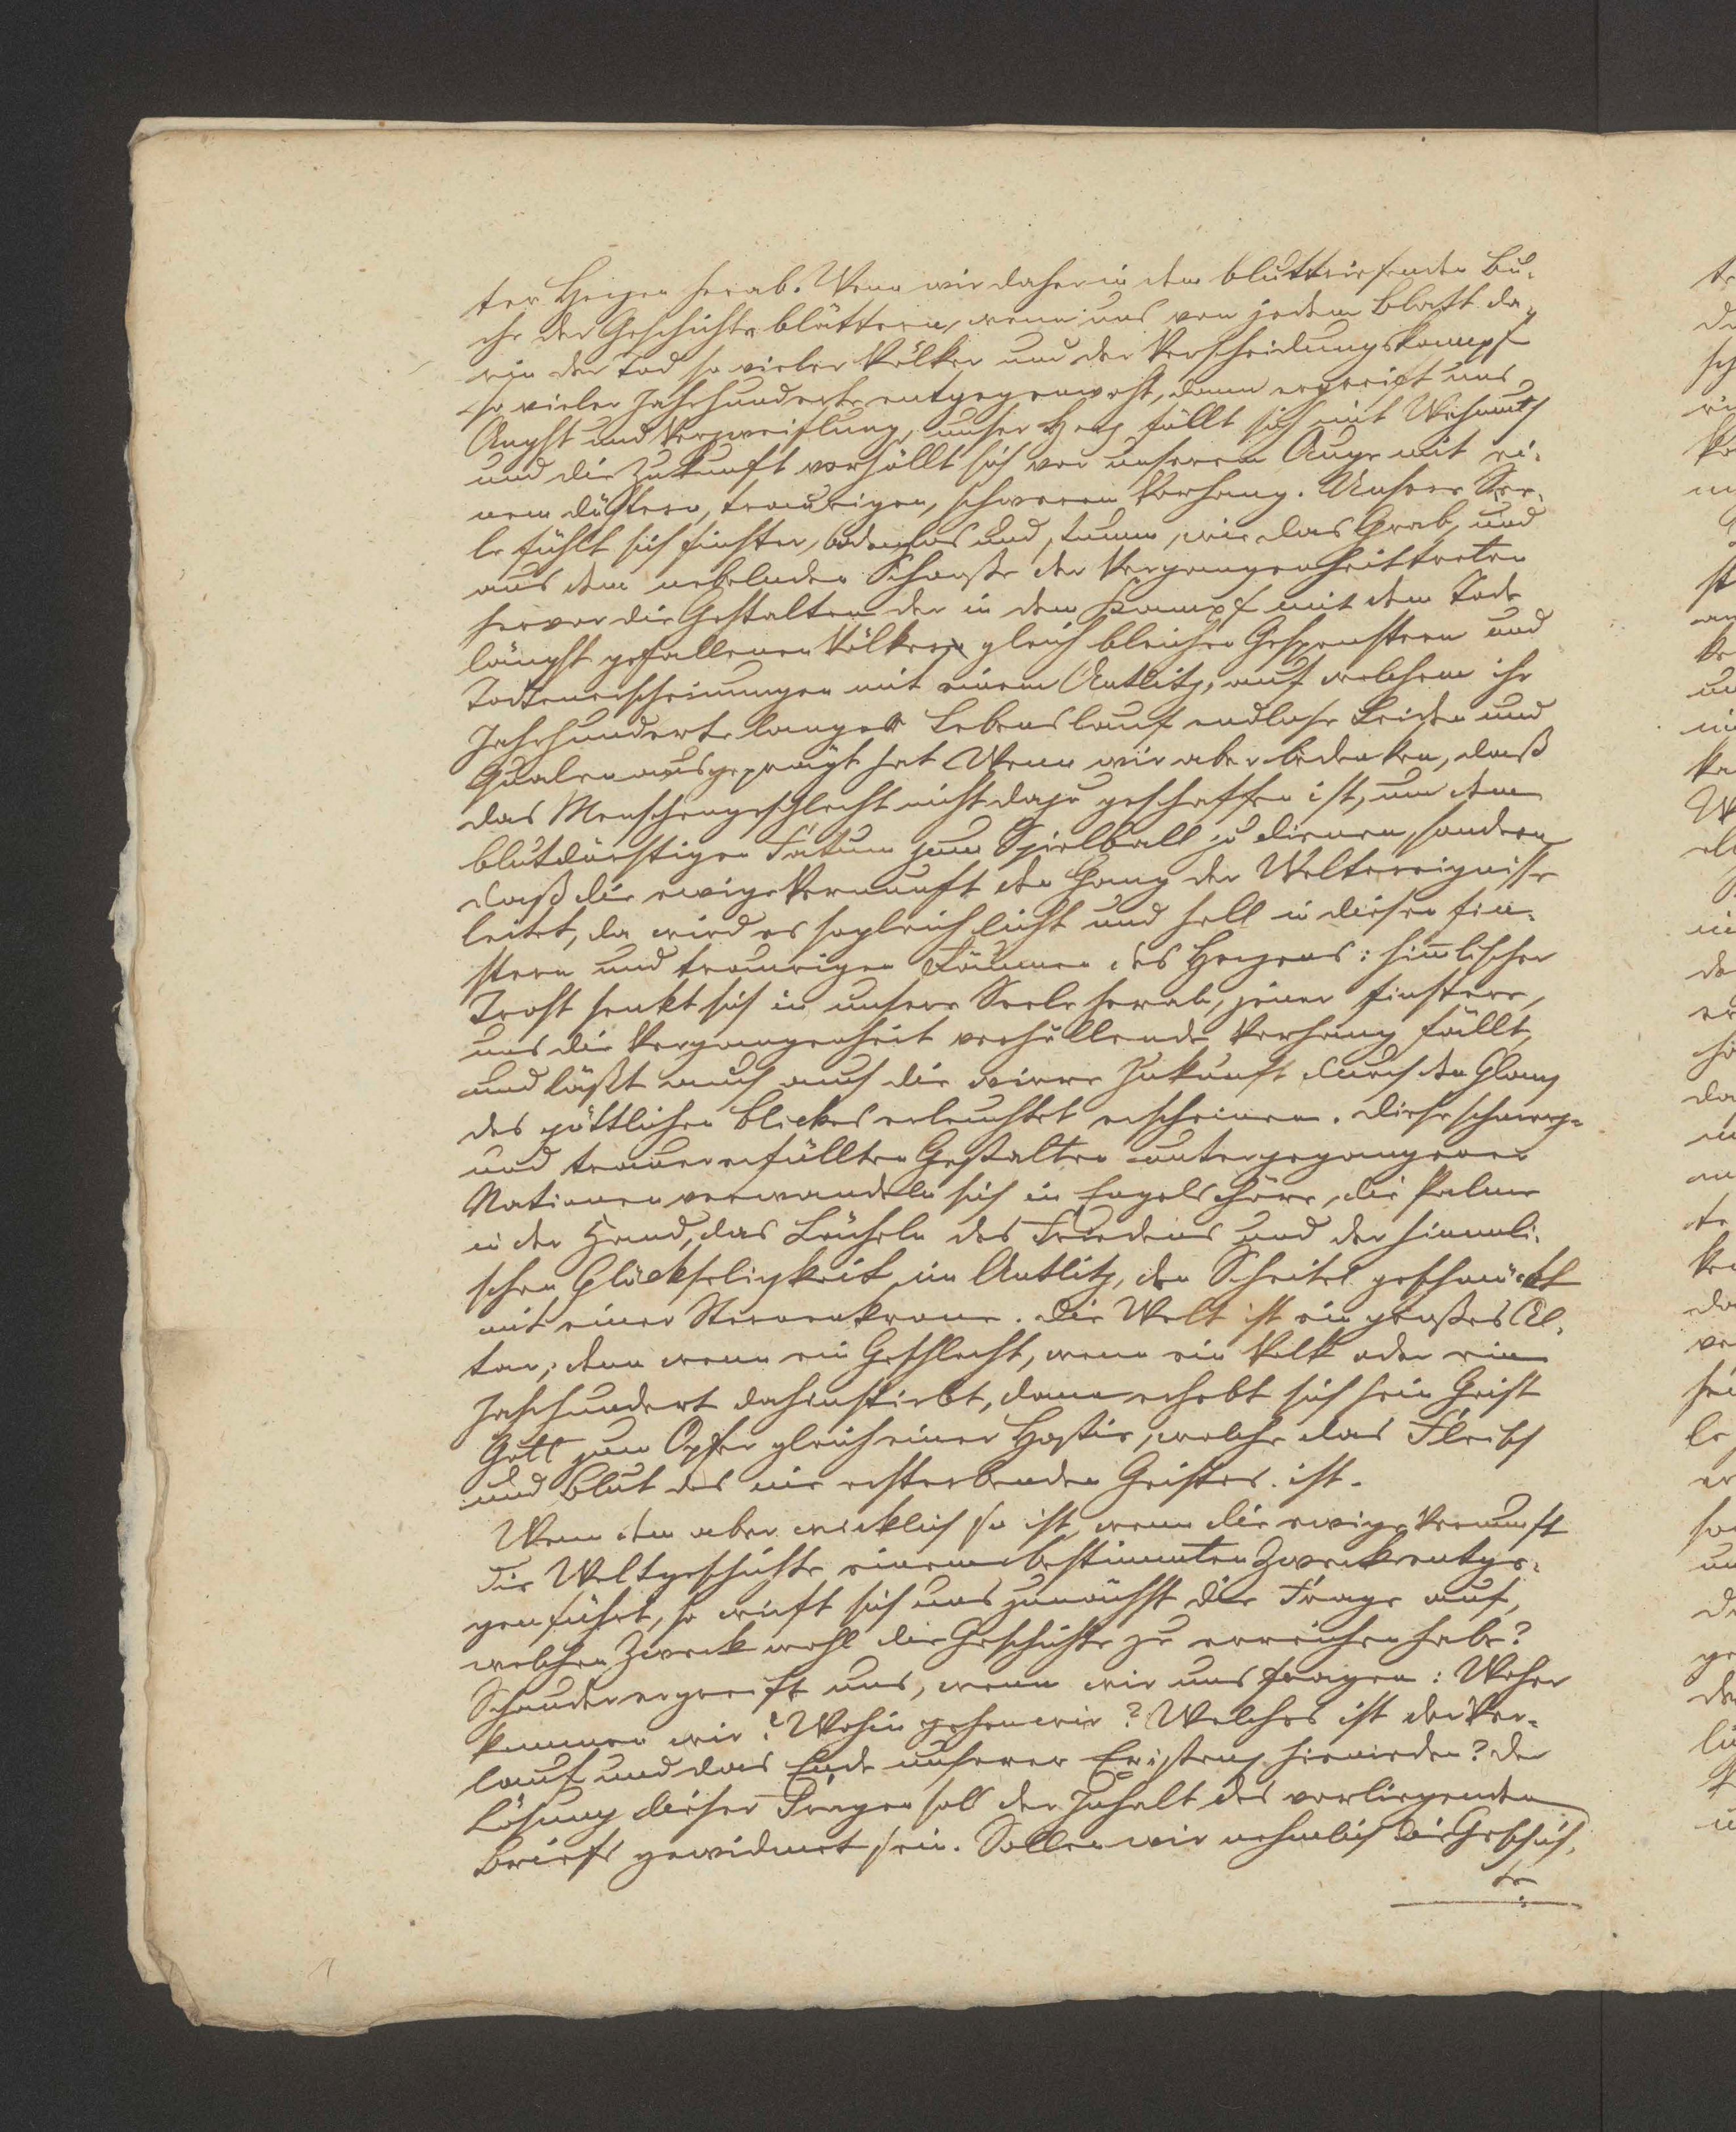 ter Herzen herab. Wenn wir daher in dem bluttriefenden Bu-
che der Geschichte blättern, wenn uns von jedem Blatt da-
rin der Tod so vieler Völker und der Verscheidungskampf
so vieler Jahrhunderte entgegenweht, dann ergreift uns
Angst und Verzweiflung, unser Herz füllt sich mit Wehmuth
und die Zukunft verhüllt sich vor unserem Auge mit ei-
nem düstern, traurigen, schweren Vorhang. Unsere See-
le fühlt sich finster, bodenlos und stumm, wie das Grab, und
aus dem nebelnden Schooße der Vergangenheit treten
hervor die Gestalten der in dem Kampf mit dem Tode
längst gefallenen Völker gleich bleichen Gespenstern und
Todtenerscheinungen mit einem Antlitz, auf welchem ihr
Jahrhunderte langer Lebenslauf endlose Leiden und
Qualen ausgeprägt hat. Wenn wir aber bedenken, daß
das Menschengeschlecht nicht dazu geschaffen ist, um dem
blutdürstigen Fatum zum Spielball zu dienen, sondern
daß die ewige Vernunft den Gang der Weltereignisse
leitet, da wird es sogleich licht und hell in diesen fin-
stern und traurigen Räumen des Herzens: him̅lischer
Trost senkt sich in unsere Seele herab, jener finstere,
uns die Vergangenheit verhüllende Vorhang fällt,
und läßt auch die wirre Zukunft durch den Glanz
des göttlichen Blickes erleuchtet erscheinen. Diese schmerz-
und trauererfüllten Gestalten untergegangener
Nationen verwandeln sich in Engelschöre, die Palme
in der Hand, das Lächeln des Friedens und der himmli-
schen Glückseligkeit im Antlitz, den Scheitel geschmückt
mit einer Sternenkrone. Die Welt ist ein großes Al-
tar, denn wenn ein Geschlecht, wenn ein Volk oder ein
Jahrhundert dahinstirbt, dann erhebt sich sein Geist
Gott zum Opfer gleich einer Hostie, welche das Fleisch
und Blut des nie ersterbenden Geistes ist.
Wenn dem aber wirklich so ist, wenn die ewige Vernunft
die Weltgeschichte einem bestimmten Zweck entge-
genführt, so wirft sich uns zunächst die Frage auf,
welchen Zweck wohl die Geschichte zu erreichen habe?
Schauder ergreift uns, wenn wir uns fragen: Woher
kommen wir? Wohin gehen wir? Welches ist der Ver-
lauf und das Ende unserer Existenz hienieden? Der
Lösung dieser Fragen soll der Inhalt des vorliegenden
Briefs gewidmet sein. Sollen wir nehmlich die Geschich-
te